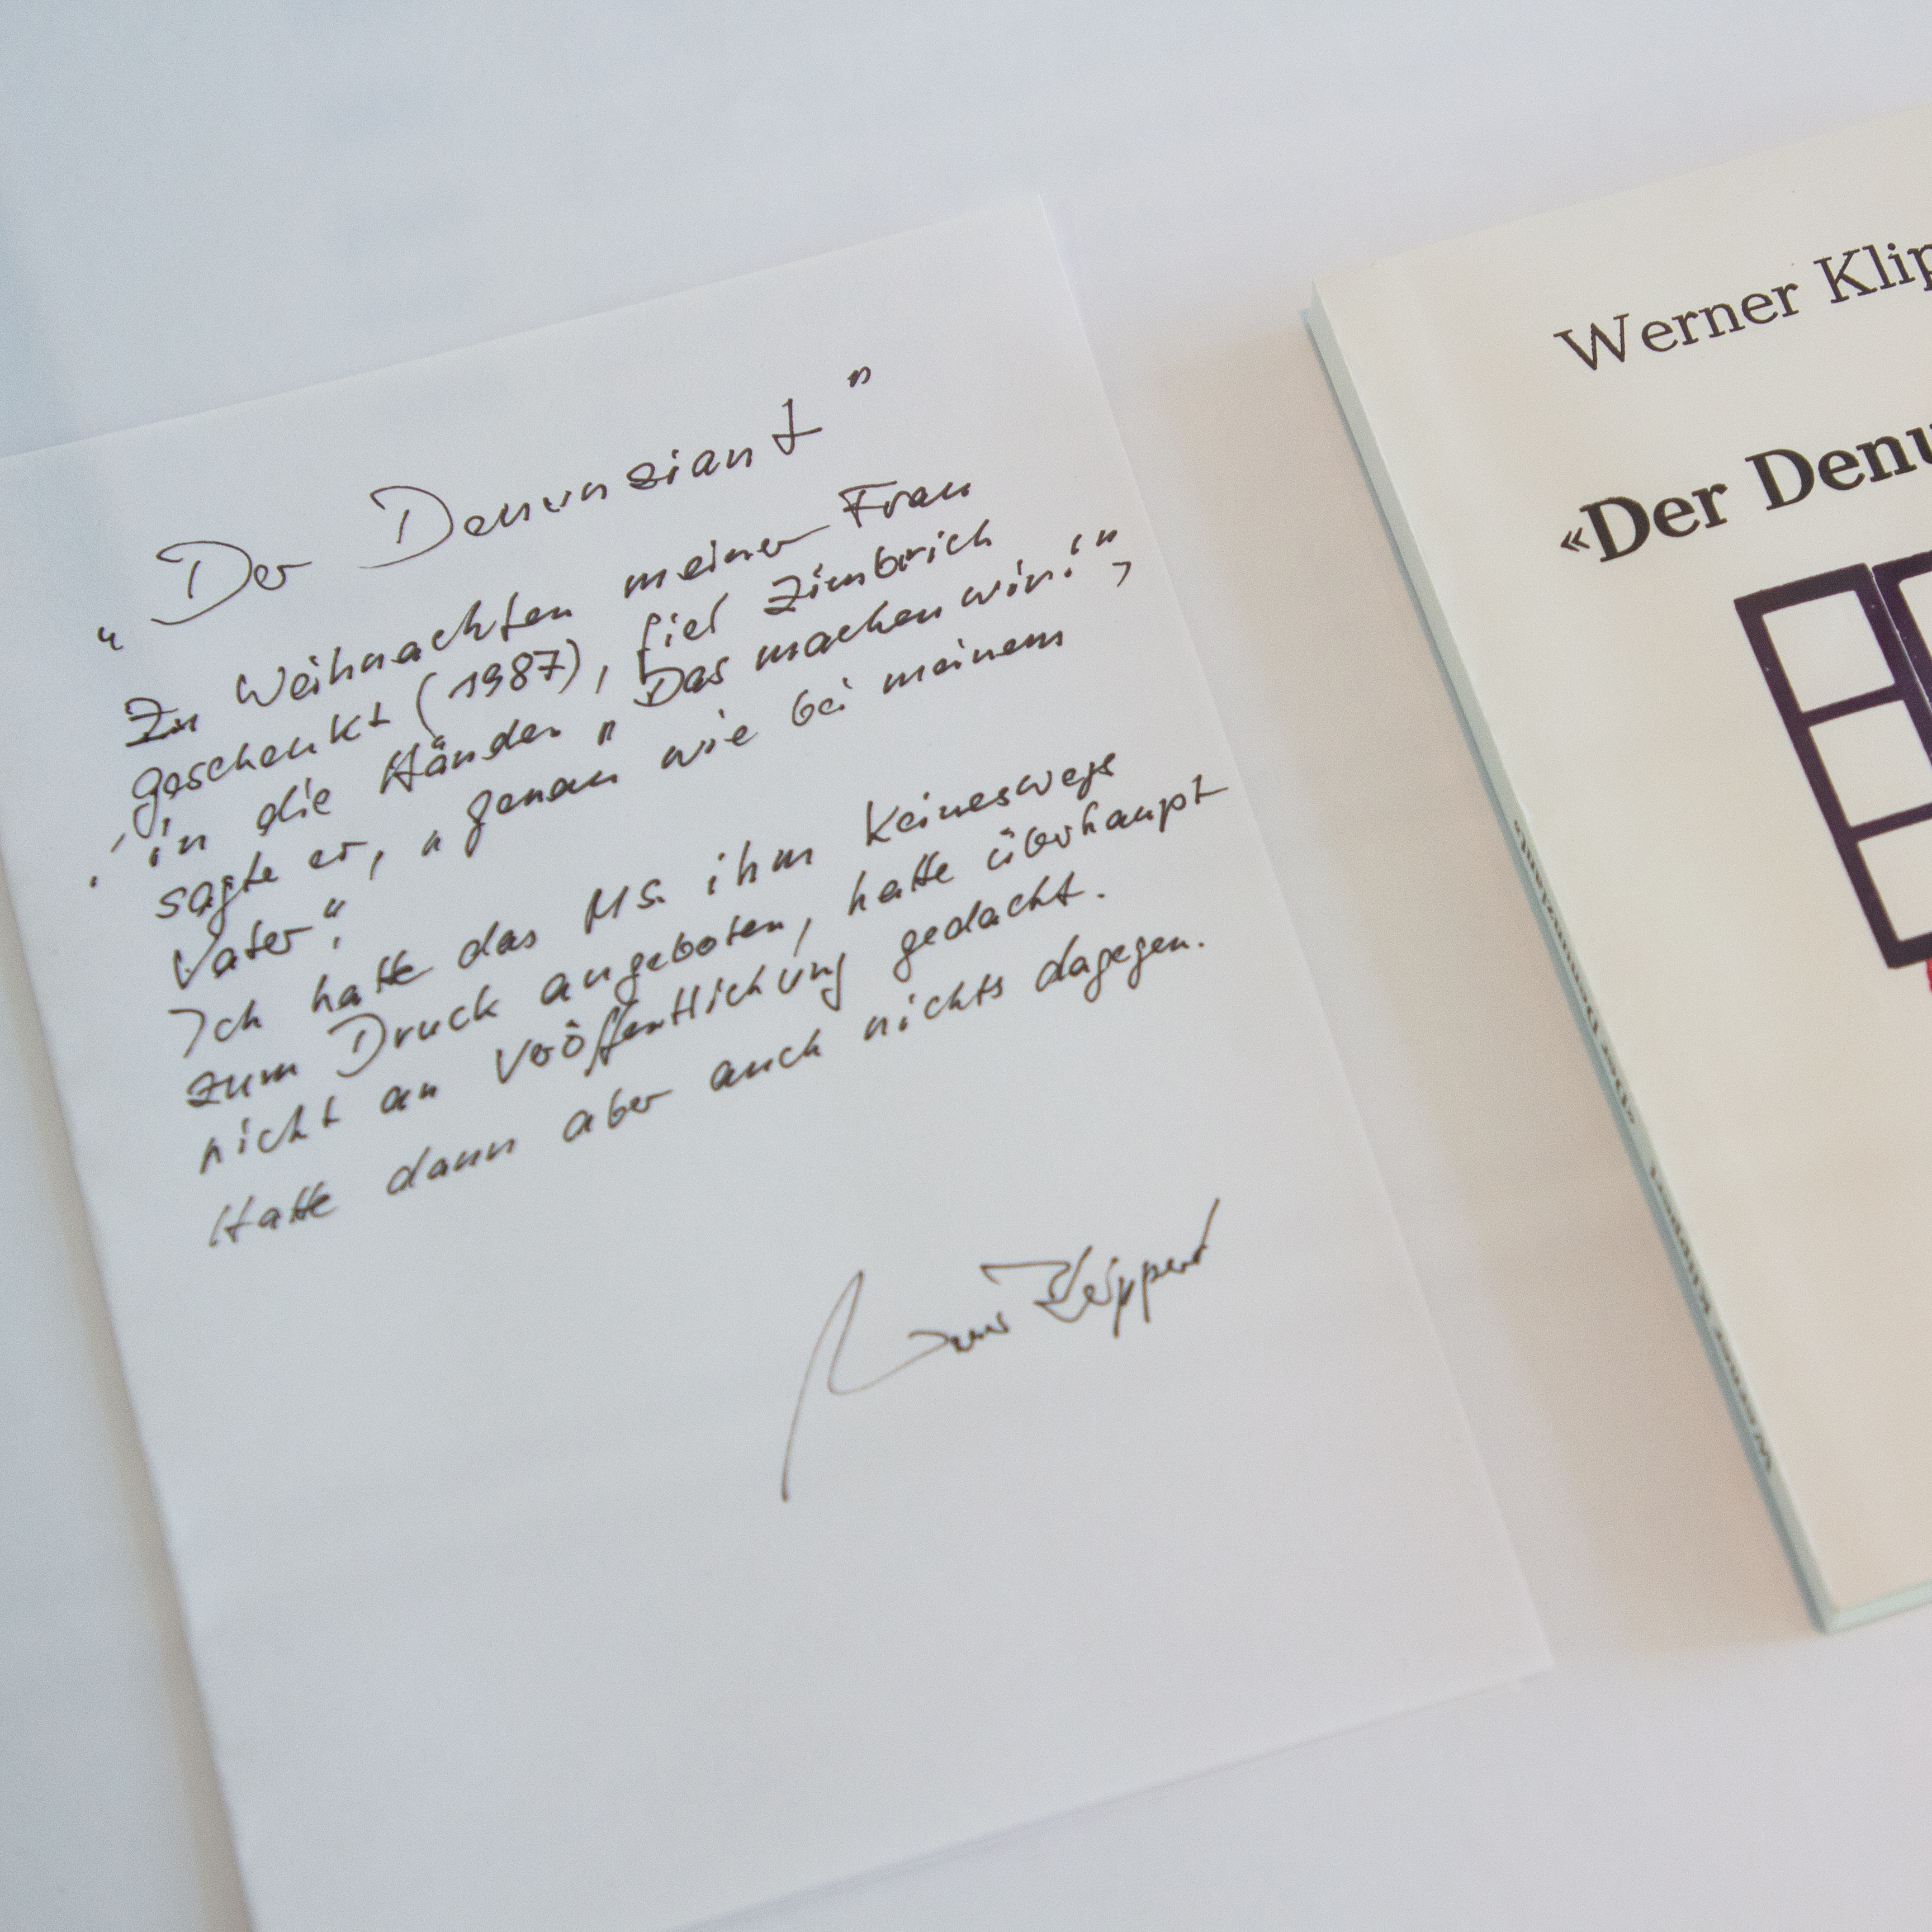 "Der Denunziant"
Zu Weihnachten meiner Frau
geschenkt (1987), fiel Zimbrich
in die Hände. "Das machen wir!",
sagte er, "genau wie bei meinem
Vater".
Ich hatte das Ms. ihm keineswegs
zum Druck angeboten, hatte überhaupt
nicht an Veröffentlichung gedacht.
Hatte dann aber auch nichts dagegen.
Werner Klippert
Werner Klip
«Der Denu
Werner Klippert «Der Denunziant»